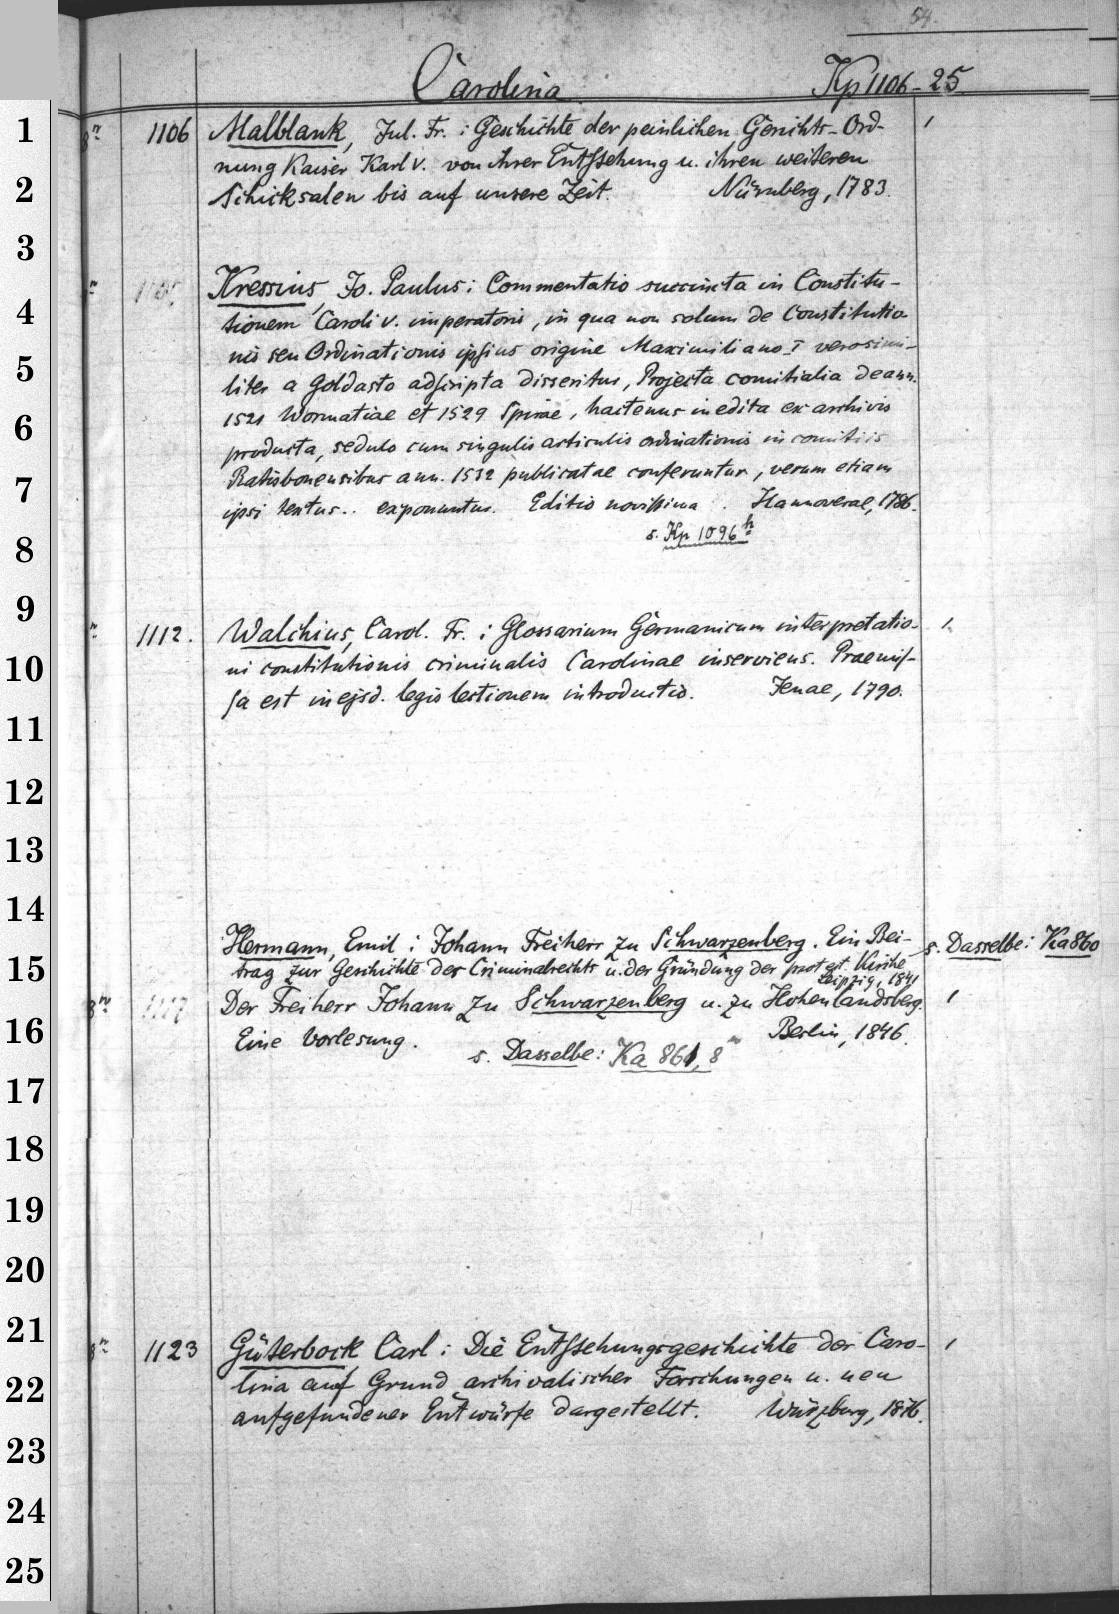 54.
Carolina Kp 1106-25
8° 1106 Malblank, Jul. Fr. : Geschichte der peinlichen Gerichts-Ord- 1
nung Kaiser Karl V. von ihrer Entstehung u. ihren weiteren
Schicksalen bis auf unsere Zeit. Nürnberg, 1783.
Kressius, Jo. Paulus : Commentatio succincta in Constitu-
tionem Caroli V. imperatoris, in qua non solum de Constitutio
nis seu Ordinationis ipsius origine Maximiliano I verosimi-
liter a Goldasto adscripta disseritur, Projecta comitialia de ann.
1521 Wormatiae et 1529 Spirae, hactenus inedita ex archivis
producta, sedulo cum singulis articulis ordinationis in comitiis
Ratisbonensibus ann. 1532 publicatae conferuntur, verum etiam
ipsi textus.. exponuntur. Editio novissima. Hannoverae, 1786.
s. Kp 1096 h
1112. Walchius, Carol. Fr. : Glossarium Germanicum interpretatio- 1.
ni constitutionis criminalis Carolinae inserviens. Praemis-
sa est in ejsd. legis lectionem introductio. Jenae, 1790.
Hermann, Emil : Johann Freiherr zu Schwarzenberg. Ein Bei- s. Dasselbe: Ka 860
trag zur Geschichte des Criminalrechts u. der Gründung der protest. Kirche
Leipzig, 1841
8° 1117 Der Freiherr Johann zu Schwarzenberg u. zu Hohenlandsberg. 1
Eine Vorlesung. Berlin, 1846.
s. Dasselbe: Ka 861, 8°
8° 1123 Güterbock Carl : Die Entstehungsgeschichte der Caro- 1
lina auf Grund archivalischer Forschungen u. neu
aufgefundener Entwürfe dargestellt. Würzburg, 1876.
1
2
3
4
5
6
7
8
9
10
11
12
13
14
15
16
17
18
19
20
21
22
23
24
25